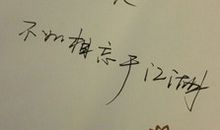 不如相忘于江湖